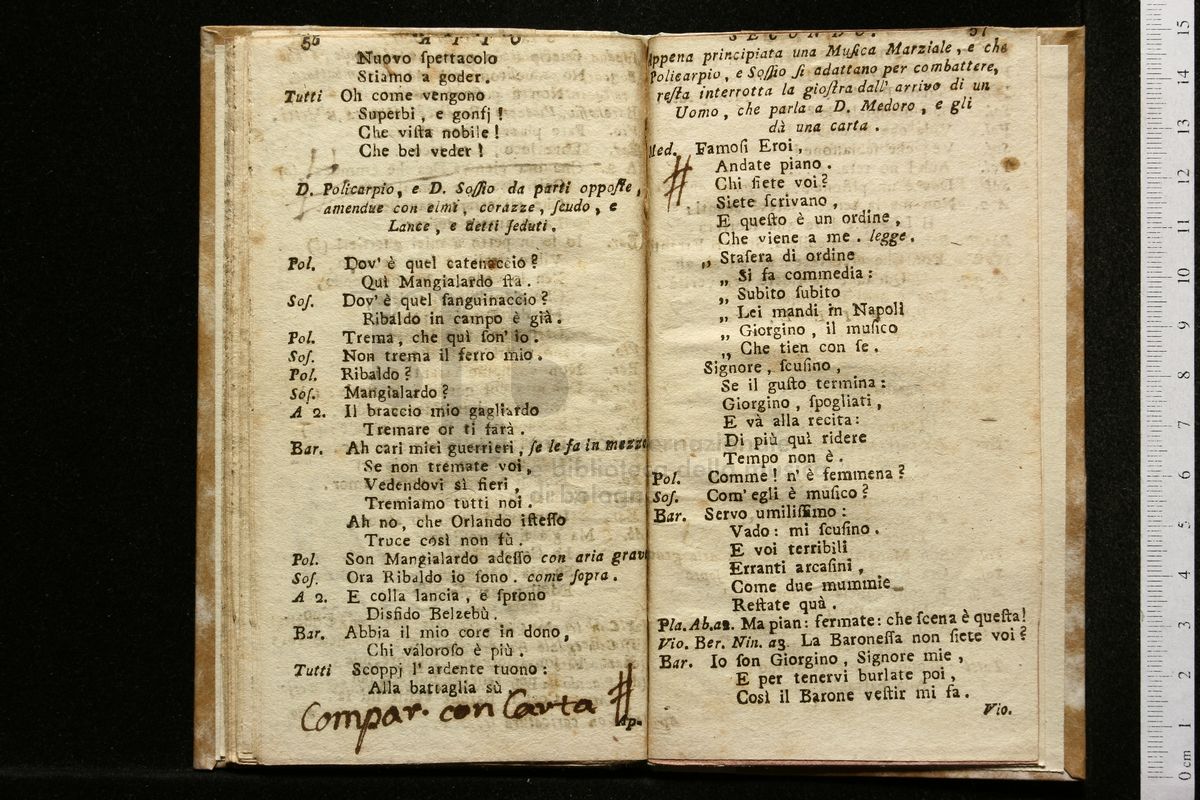 56 ATTO
Nuovo ſpettacolo
Stiamo a goder.
Tutti Oh come vengono
Superbi, e gonfj!
Che viſta nobile!
Che bel veder!
D. Policarpio, e D. Soſſio da parti oppoſte,
amendue con elmi, corazze, ſcudo, e
Lance, e detti ſeduti.
Pol. Dov' è quel catenaccio?
Quì Mangialardo ſta.
Soſ. Dov' è quel ſanguinaccio?
Ribaldo in campo è già.
Pol. Trema, che quì ſon' io.
Soſ. Non trema il ferro mio.
Pol. Ribaldo?
Soſ. Mangialardo?
A 2. Il braccio mio gagliardo
Tremare or ti farà.
Bar. Ah cari miei guerrieri, ſe le fa in mezzo
Se non tremate voi,
Vedendovi sì fieri,
Tremiamo tutti noi.
Ah no, che Orlando iſteſſo
Truce così non fù.
Pol. Son Mangialardo adeſſo con aria grave
Soſ. Ora Ribaldo io ſono. come ſopra.
A 2. E colla lancia, e ſprono
Disfido Belzebù.
Bar. Abbia il mio core in dono,
Chi valoroſo è più.
Tutti Scoppj l' ardente tuono:
Alla battaglia sù
Compar. con Carta #
Ap-
SECUNDO. 57
Appena principiata una Muſica Marziale, e che
Policarpio, e Soſſio ſi adattano per combattere,
reſta interrotta la gioſtra dall' arrivo di un
Uomo, che parla a D. Medoro, e gli
dà una carta.
Med. Famoſi Eroi,
# Andate piano.
Chi ſiete voi?
Siete ſcrivano,
E queſto è un ordine,
Che viene a me. legge.
„ Staſera di ordine
„ Si fa commedia:
„ Subito ſubito
„ Lei mandi in Napoli
„ Giorgino, il muſico
„ Che tien con ſe.
Signore, ſcuſino,
Se il guſto termina:
Giorgino, ſpogliati,
E và alla recita:
Di più quì ridere
Tempo non è.
Pol. Comme! n' è femmena?
Soſ. Com' egli è muſico?
Bar. Servo umiliſſimo:
Vado: mi ſcuſino.
E voi terribili
Erranti arcaſini,
Come due mummie
Reſtate quà.
Pla. Ab. a2. Ma pian: fermate: che ſcena è queſta!
Vio. Ber. Nin. a3. La Baroneſſa non ſiete voi?
Bar. Io ſon Giorgino, Signore mie,
E per tenervi burlate poi,
Così il Barone veſtir mi fa.
Vio.
0 cm 1 2 3 4 5 6 7 8 9 10 11 12 13 14 15